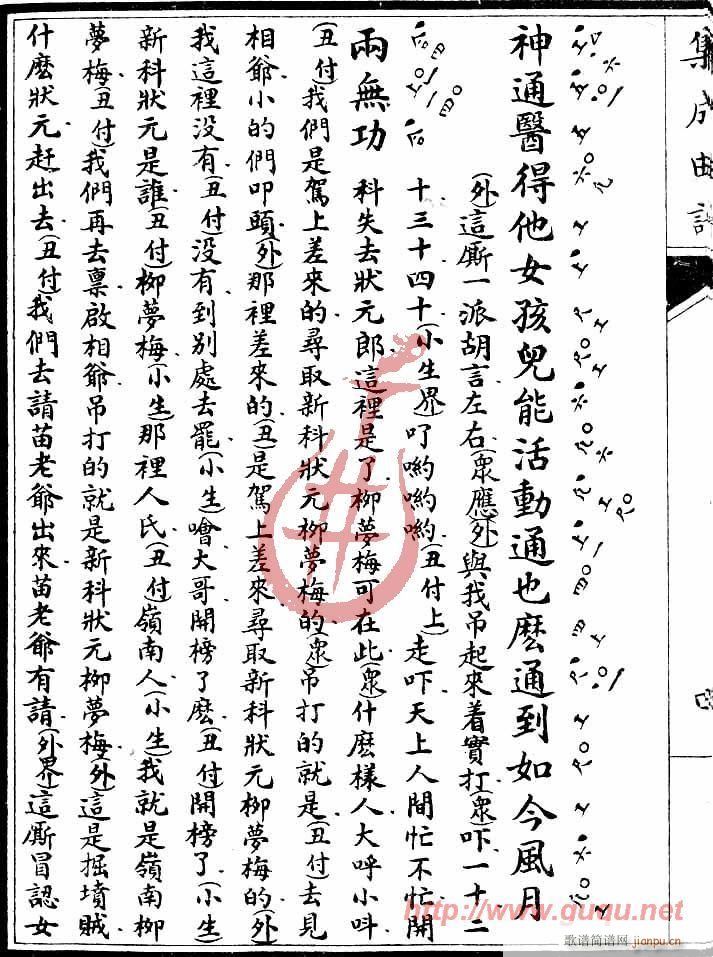 集成曲譜
神通醫得他女孩兒能活動通也麽通到如今風月
(外)這厮一派胡言左右(衆應)(外)與我吊起來着實打(衆)吓一十二
十三十四十(小生界)吖喲喲喲(丑付上)走吓天上人間忙不忙開
兩無功
科失去狀元郎這裡是了柳夢梅可在此(衆)什麽樣人大呼小呌
(丑付)我們是駕上差來的尋取新科狀元柳夢梅的(衆)吊打的就是(丑付)去見
相爺小的們叩頭(外)那裡差來的(丑)是駕上差來尋取新科狀元柳夢梅的(外)
我這裡没有(丑付)没有到别處去罷(小生)噲大哥開榜了麽(丑付)開榜了(小生)
新科狀元是誰(丑付)柳夢梅(小生)那裡人氏(丑付)嶺南人(小生)我就是嶺南柳
夢梅(丑付)我們再去禀啟相爺吊打的就是新科狀元柳夢梅(外)這是掘墳賊
什麽狀元赶出去(丑付)我們去請苗老爺出來苗老爺有請(外界)這厮冒認女
http://www.guqu.net
歌谱简谱网 jianpu.cn